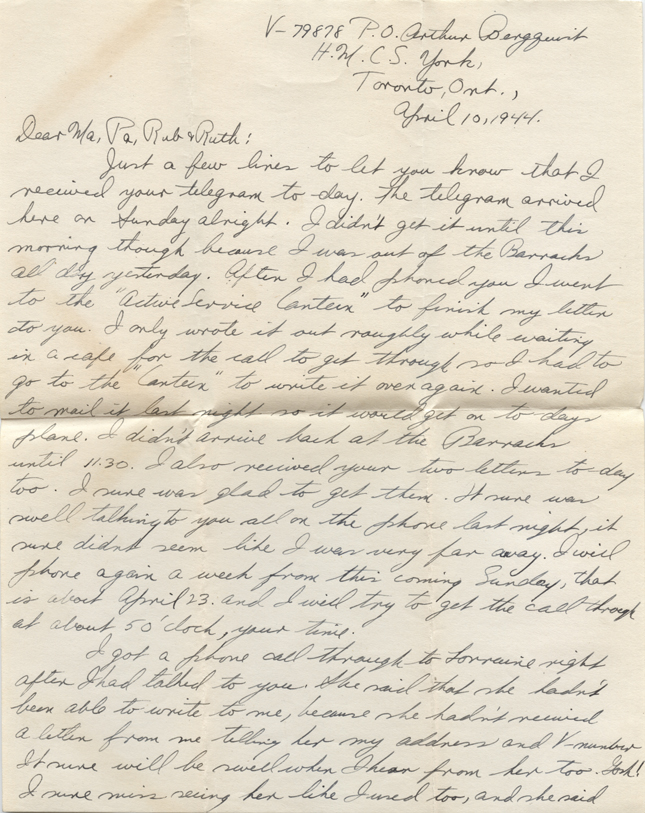 V-79878 P.O. Arthur Bergqvist
H.M.C.S. York,
Toronto, Ont.,
April 10, 1944.
Dear Ma, Pa, Rub & Ruth:
Just a few lines to let you know that I
received your telegram to day. The telegram arrived
here on Sunday alright. I didn't get it until this
morning though because I was out of the Barracks
all day yesterday. After I had phoned you I went
to the "Active Service Canteen" to finish my letter
to you. I only wrote it out roughly while waiting
in a cafe for the call to get through so I had to
go to the "Canteen" to write it over again. I wanted
to mail it last night so it would get on to days
plane. I didn't arrive back at the Barracks
until 11.30. I also received your two letters to-day
too. I sure was glad to get them. It sure was
swell talking to you all on the phone last night, it
sure didnt seem like I was very far away. I will
phone again a week from this coming Sunday, that
is about April 23. and I will try to get the call through
at about 5 O'clock, your time.
I got a phone call through to Lorraine right
after I had talked to you. She said that she hadn't
been able to write to me, because she hadn't received
a letter from me telling her my address and V-number
It sure will be swell when I hear from her too. Gosh!
I sure miss seeing her like I used too, and she said